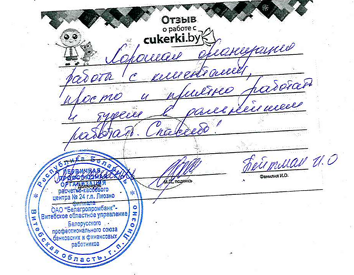 Отзыв
о работе с
cukerki.by
Хорошая организация
работы с клиентами,
просто и приятно работать
и будем в дальнейшем
работать. Спасибо!
Республика Беларусь
Витебская область, г.п. Лиозно
ПЕРВИЧНАЯ
ПРОФСОЮЗНАЯ
ОРГАНИЗАЦИЯ
расчетно-кассового
центра № 24 г.п. Лиозно
ОАО "Белагропромбанк"-
Витебское областное управление
Белорусского
профессионального союза
банковских и финансовых
работников
подпись
И.О
Фамилия И.О.